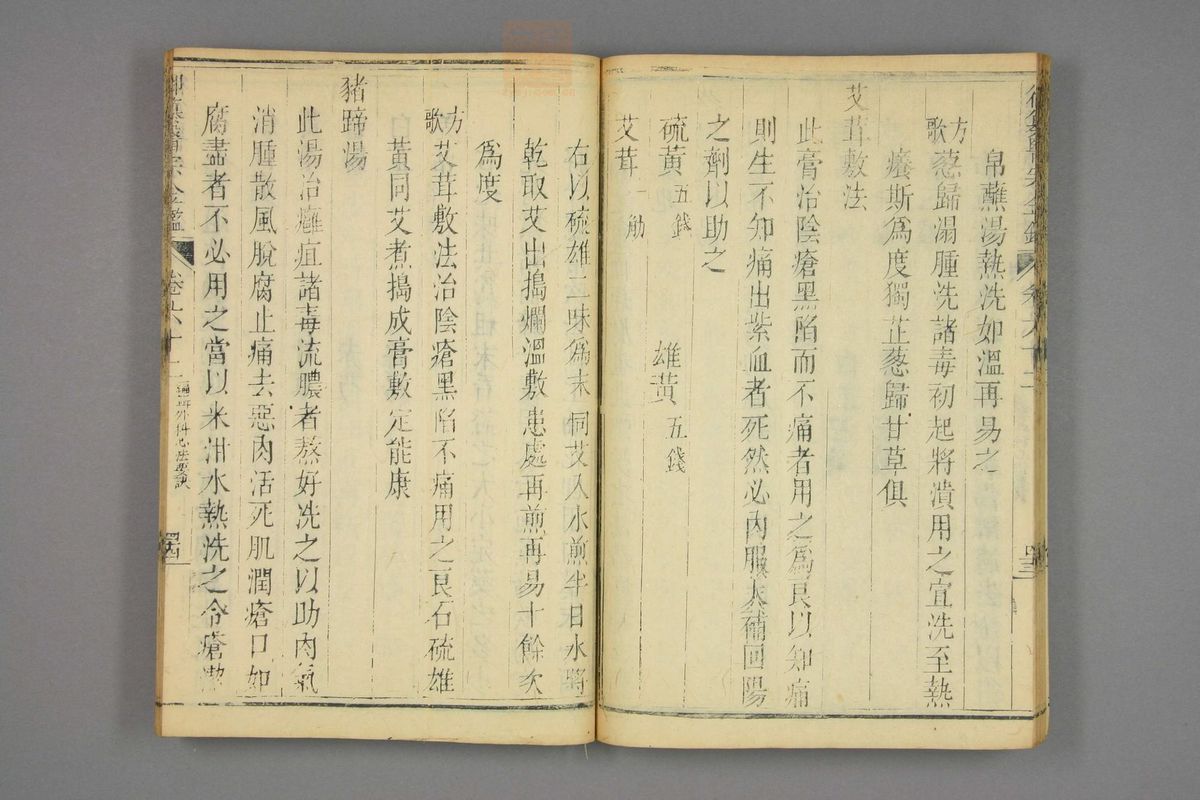 帛蘸湯熱洗如溫再易之
方歌 葱歸溻腫洗諸毒初起將潰用之宜洗至熱
癢斯爲度獨芷葱歸甘草俱
艾茸敷法
此膏治陰瘡黑陷而不痛者用之爲良以知痛
則生不知痛出紫血者死然必內服大補回陽
之劑以助之
硫黃五錢 雄黃五錢
艾茸一觔
右以硫雄二味爲末同艾入水煎半日水將
乾取艾出搗爛溫敷患處再煎再易十餘次
爲度
方歌 艾茸敷法治陰瘡黑陷不痛用之良石硫雄
黃同艾煮搗成膏敷定能康
豬蹄湯
此湯治癰疽諸毒流膿者熬好洗之以助肉氣
消腫散風脫腐止痛去惡肉活死肌潤瘡口如
腐盡者不必用之當以米泔水熱洗之令瘡潔
御纂醫宗金鑑
卷六十二
編輯外科心法要訣